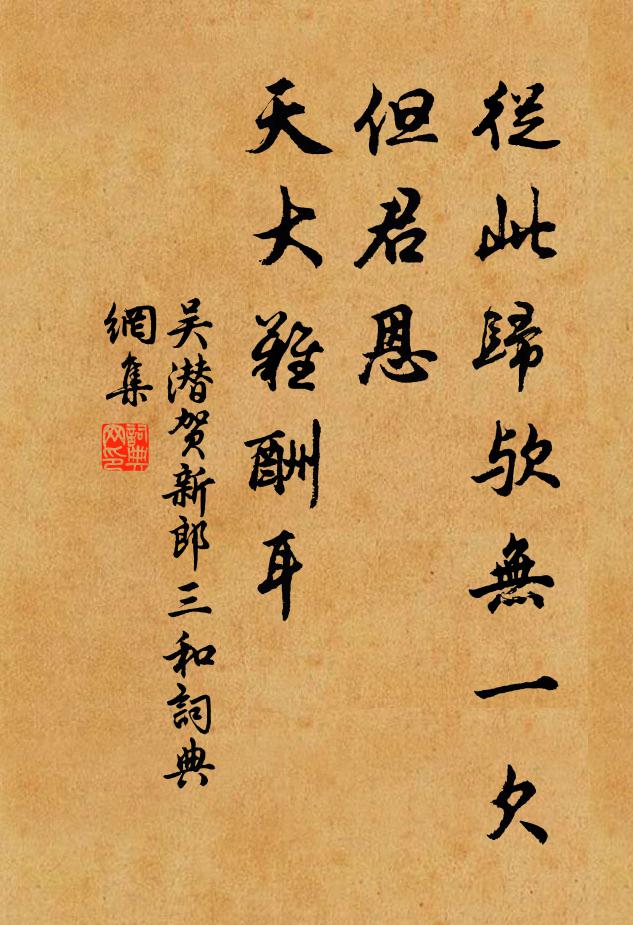 從此歸欤無一欠
但君恩
天大難酬耳
吴潜贺新郎三和詞典
網集
詞典
网印